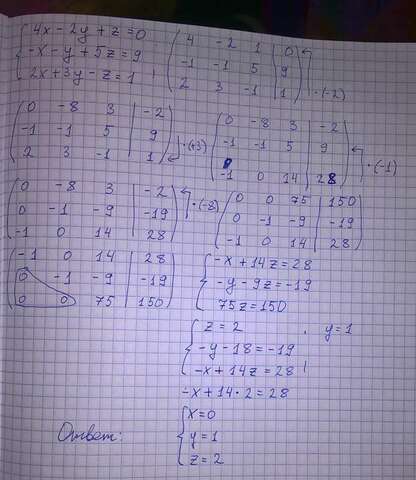 { 4x - 2y + z = 0
-x - y + 5z = 9
2x + 3y - z = 1
( 4 -2 1 | 0
-1 -1 5 | 9
2 3 -1 | 1 ) ·(-2)
( 0 -8 3 | -2
-1 -1 5 | 9
2 3 -1 | 1 ) ·(+3)
( 0 -8 3 | -2
-1 -1 5 | 9
-1 0 14 | 28 ) ·(-1)
( 0 -8 3 | -2
0 -1 -9 | -19
-1 0 14 | 28 ) ·(-8)
( 0 0 75 | 150
0 -1 -9 | -19
-1 0 14 | 28 )
( -1 0 14 | 28
0 -1 -9 | -19
0 0 75 | 150 )
{ -x + 14z = 28
-y - 9z = -19
75z = 150
{ z = 2 y = 1
-y - 18 = -19
-x + 14z = 28
-x + 14 · 2 = 28
Ответ: { x = 0
y = 1
z = 2